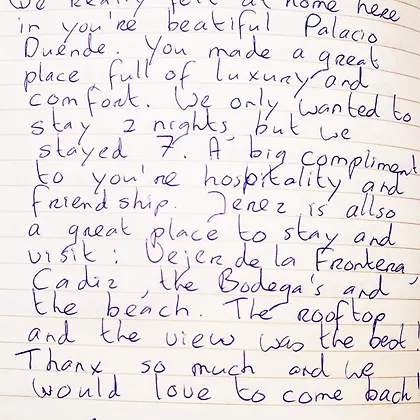 We really felt at home here
in you're beatiful Palacio
Duende. You made a great
place full of luxury and
comfort. We only wanted to
stay 2 nights, but we
stayed 7. A big compliment
to you're hospitality and
friendship. Jerez is allso
a great place to stay and
visit: Vejer de la Frontera,
Cadiz, the Bodega's and
the beach. The rooftop
and the view was the best!
Thanx so much and we
would love to come back!